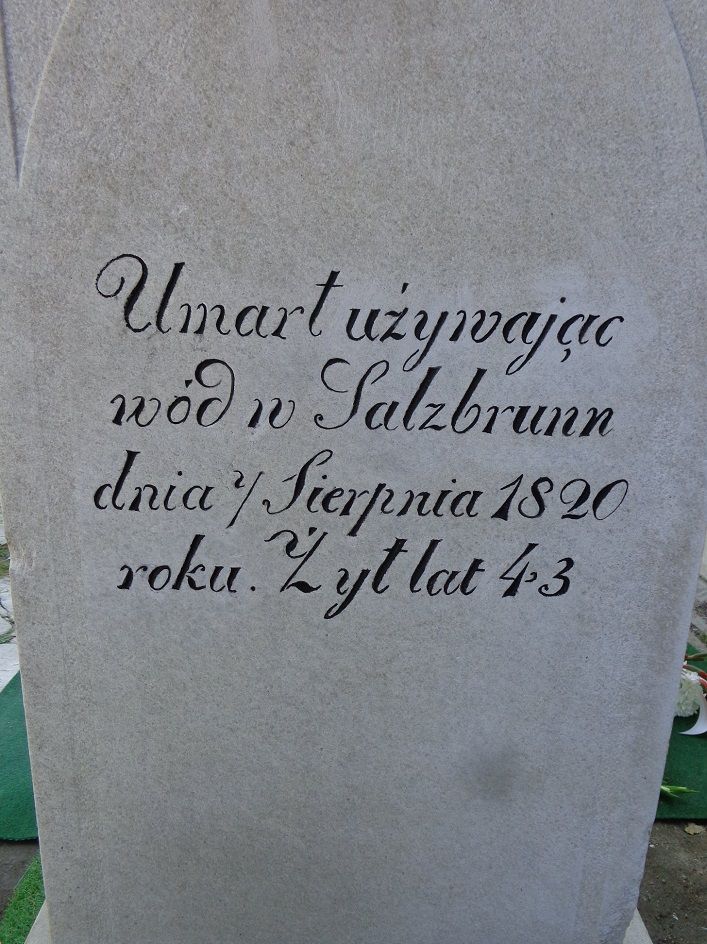 Umarł używając
wód w Salzbrunn
dnia 7 Sierpnia 1820
roku. Żył lat 43